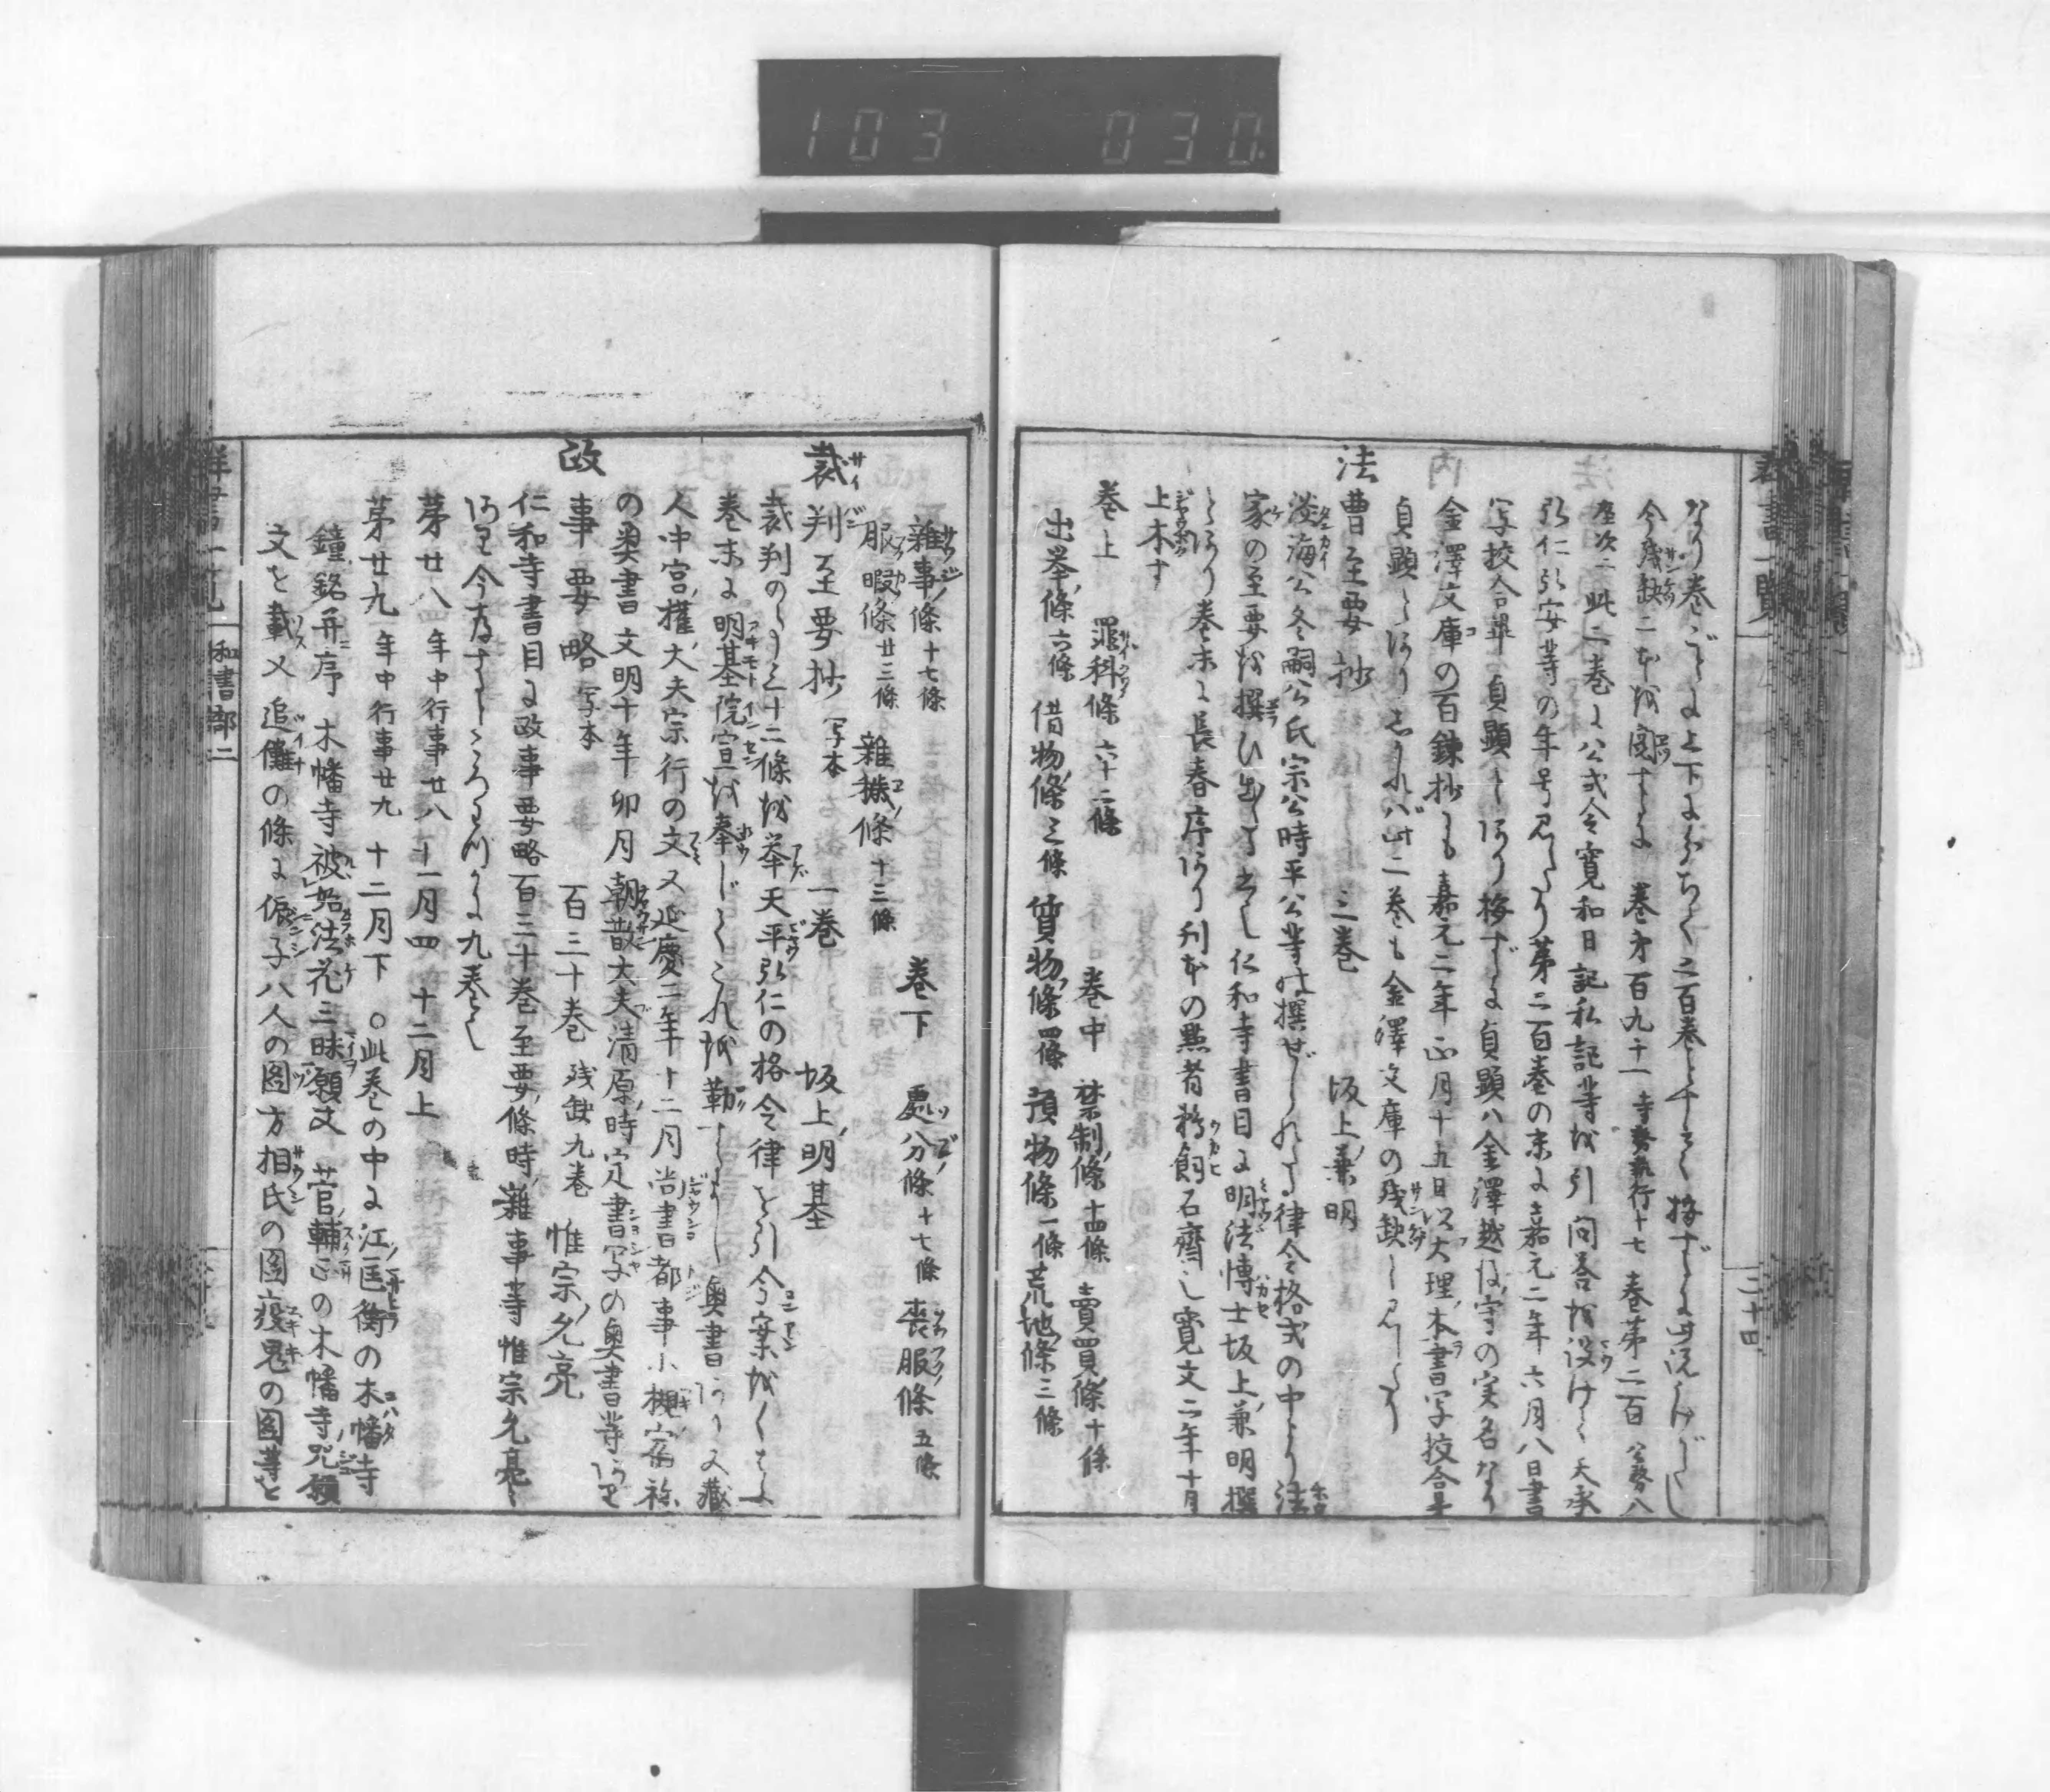 103 030
群書一覧
三十四
なり巻ごとに上下にわかちて二百巻
今残缺二本を閲するに 巻第百九十一 寺務執行十七 巻第二百 公務八
座次二 此二巻に公式令寛和日記私記等を引問答を設けて天承
弘仁弘安等の年号見えたり第二百巻の末に嘉元二年六月八日書
写校合畢 貞顕とあり按ずるに貞顕ハ金澤越後守の実名なり
金澤文庫の百錬抄にも嘉元二年正月十五日以大理本書写校合畢
貞顕とありしかれば此二巻も金澤文庫の残缺と見えたり
法曹至要抄 三巻 坂上兼明
淡海公冬嗣公氏宗公時平公等の撰せられたる律令格式の中より法
家の至要を撰ひ出したる也仁和寺書目に明法博士坂上兼明撰
とあり巻末に長春序あり刊本の點者鵜飼石齋也寛文二年十月
上木す
巻上 罪科條 六十二條 巻中 禁制條 十四條 賣買條 十條
出挙條 六條 借物條 三條 質物條 四條 預物條 一條 荒地條 三條
雜事條 十七條 巻下 處分條 十七條 喪服條 五條
服暇條 廿三條 雜穢條 十三條
裁判至要抄 写本 一巻 坂上明基
裁判のうへ三十二條を挙天平弘仁の格令律を引今案をくはふ
巻末に明基院宣を奉じてこれを勒するよし奥書あり又藏
人中宮權大夫宗行の文又延慶二年十二月尚書都事小槻宿祢
の奥書文明十年卯月朝散大夫清原時定書写の奥書等あり
政事要略 写本 百三十巻 残缺九巻 惟宗允亮
仁和寺書目に政事要略百三十巻至要條時雜事等惟宗允亮と
あり今存するところわづかに九巻也
第廿八 年中行事廿八 十一月四 十二月上
第廿九 年中行事廿九 十二月下 ○此巻の中に江匡衡の木幡寺
鐘銘并序 木幡寺被始法花三昧願文 菅輔正の木幡寺咒願
文を載又追儺の條に侲子八人の圖方相氏の圖疫鬼の圖等を
群書一覧 和書部二